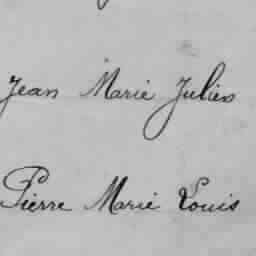 Jean Marie Julien
Pierre Marie Louis